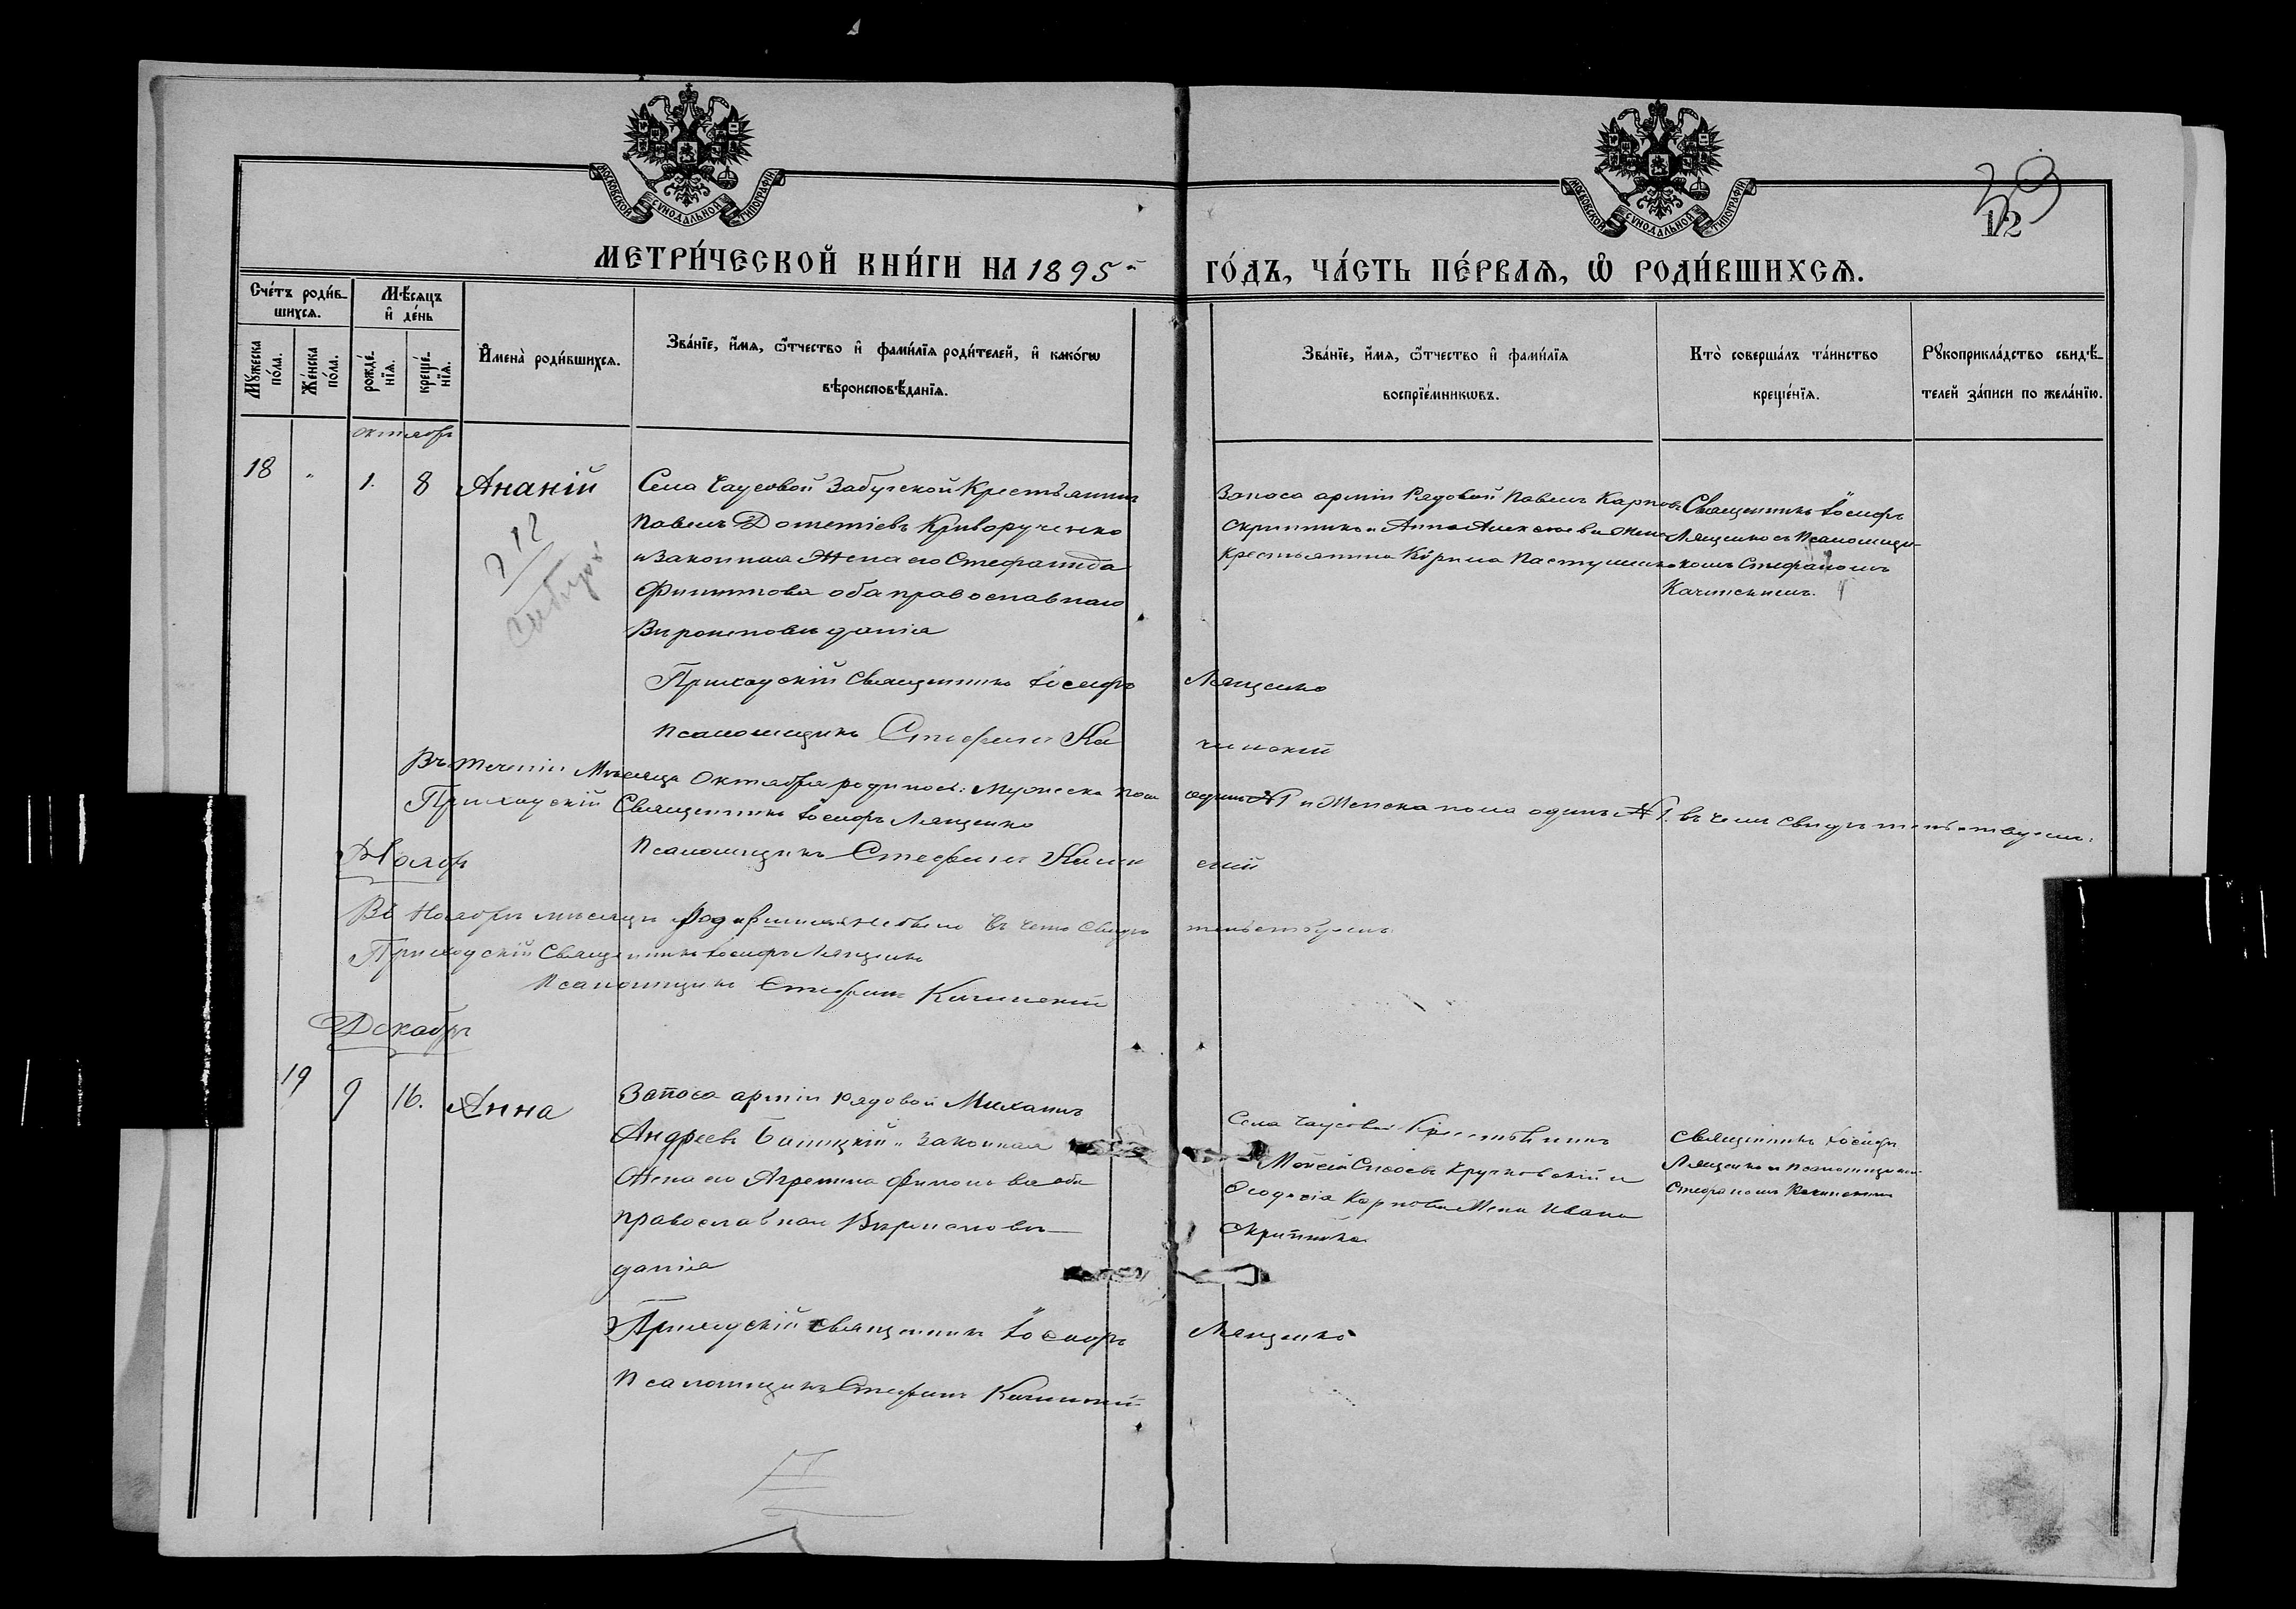 МОСКОВСКОЙ СѴНОДАЛЬНОЙ ТИПОГРАФІИ
МОСКОВСКОЙ СѴНОДАЛЬНОЙ ТИПОГРАФІИ
39
12
МЕТРИ́ЧЕСКОЙ КНИ́ГИ НА 1895й ГО́ДЪ, ЧА́СТЬ ПЕ́РВАѦ, Ѽ РОДИ́ВШИХСѦ.
Сче́тъ роди́в-
шихсѧ.
Мꙋ́жеска по́ла.
Же́нска по́ла.
Мѣ́сѧцъ
и҆ де́нь
рожде́нїѧ.
креще́нїѧ.
И҆мена̀ роди́вшихсѧ.
Зва́нїе, и҆́мѧ, ѻ҆́тчество и҆ фами́лїѧ роди́телей, и҆ како́гѡ
вѣроисповѣ́данїѧ.
Зва́нїе, и҆́мѧ, ѻ҆́тчество и҆ фами́лїѧ
воспрїе́мникѡвъ.
Кто̀ соверша́лъ та́инство
креще́нїѧ.
Рꙋкоприкла́дство свидѣ́-
телей за́писи по жела́нїю.
октябрь
18 " 1. 8 Ананій
Села Чаусовой Забугской Крестьянинъ
Павелъ Дометіевъ Криворученко
и законная Жена его Стефанида
Филиппова оба православнаго
Вѣроисповѣданія
Запаса арміи Рядовой Павелъ Карповъ
Скрипникъ и Анна Алексѣева Жена
Крестьянина Кирила Пастушенко
Священникъ Іосифъ
Лященко съ Псаломщи-
комъ Стефаномъ
Качинскимъ.
Приходскій Священникъ Іосифъ Лященко
Псаломщикъ Стефанъ Качинскій
Въ теченіи Мѣсяца Октября родилось: Мужеска пола одинъ №1 и Женска пола одинъ №1. въ чемъ свидѣтельствуемъ:
Приходскій Священникъ Іосифъ Лященко
Псаломщикъ Стефанъ Качинскій
Ноябрь
Въ Ноябрѣ мѣсяцѣ Родившихся не было въ чемъ свидѣтельствуемъ
Приходскій Священникъ Іосифъ Лященко
Псаломщикъ Стефанъ Качинскій
Декабрь
19 9 16. Анна
Запаса арміи рядовой Михаилъ
Андреевъ законная
Жена его Агрепина Филипова оба
православнаго Вѣроисповѣ-
данія
Села Чаусовой Крестьянинъ
Моисей Крутковскій и
Феодосія Карпова Жена Ивана
Скрипника
Священникъ Іосифъ
Лященко и Псаломщикъ
Стефаномъ Качинскимъ
Приходскій Священникъ Іосифъ Лященко
Псаломщикъ Стефанъ Качинскій